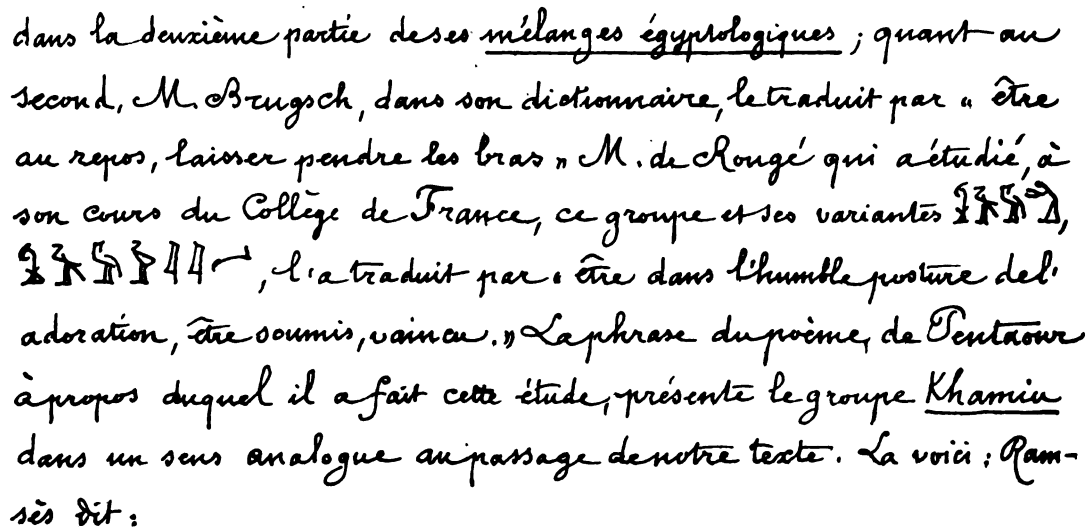 dans la deuxième partie de ses mélanges égyptologiques ; quant au
second, M. Brugsch, dans son dictionnaire, le traduit par « être
au repos, laisser pendre les bras » M. de Rougé qui a étudié, à
son cours du Collège de France, ce groupe et ses variantes ,
, l'a traduit par « être dans l'humble posture de l'
adoration, être soumis, vaincu. » La phrase du poème, de Pentaour
à propos duquel il a fait cette étude, présente le groupe Khamiu
dans un sens analogue au passage de notre texte. La voici : Ram-
sès dit :